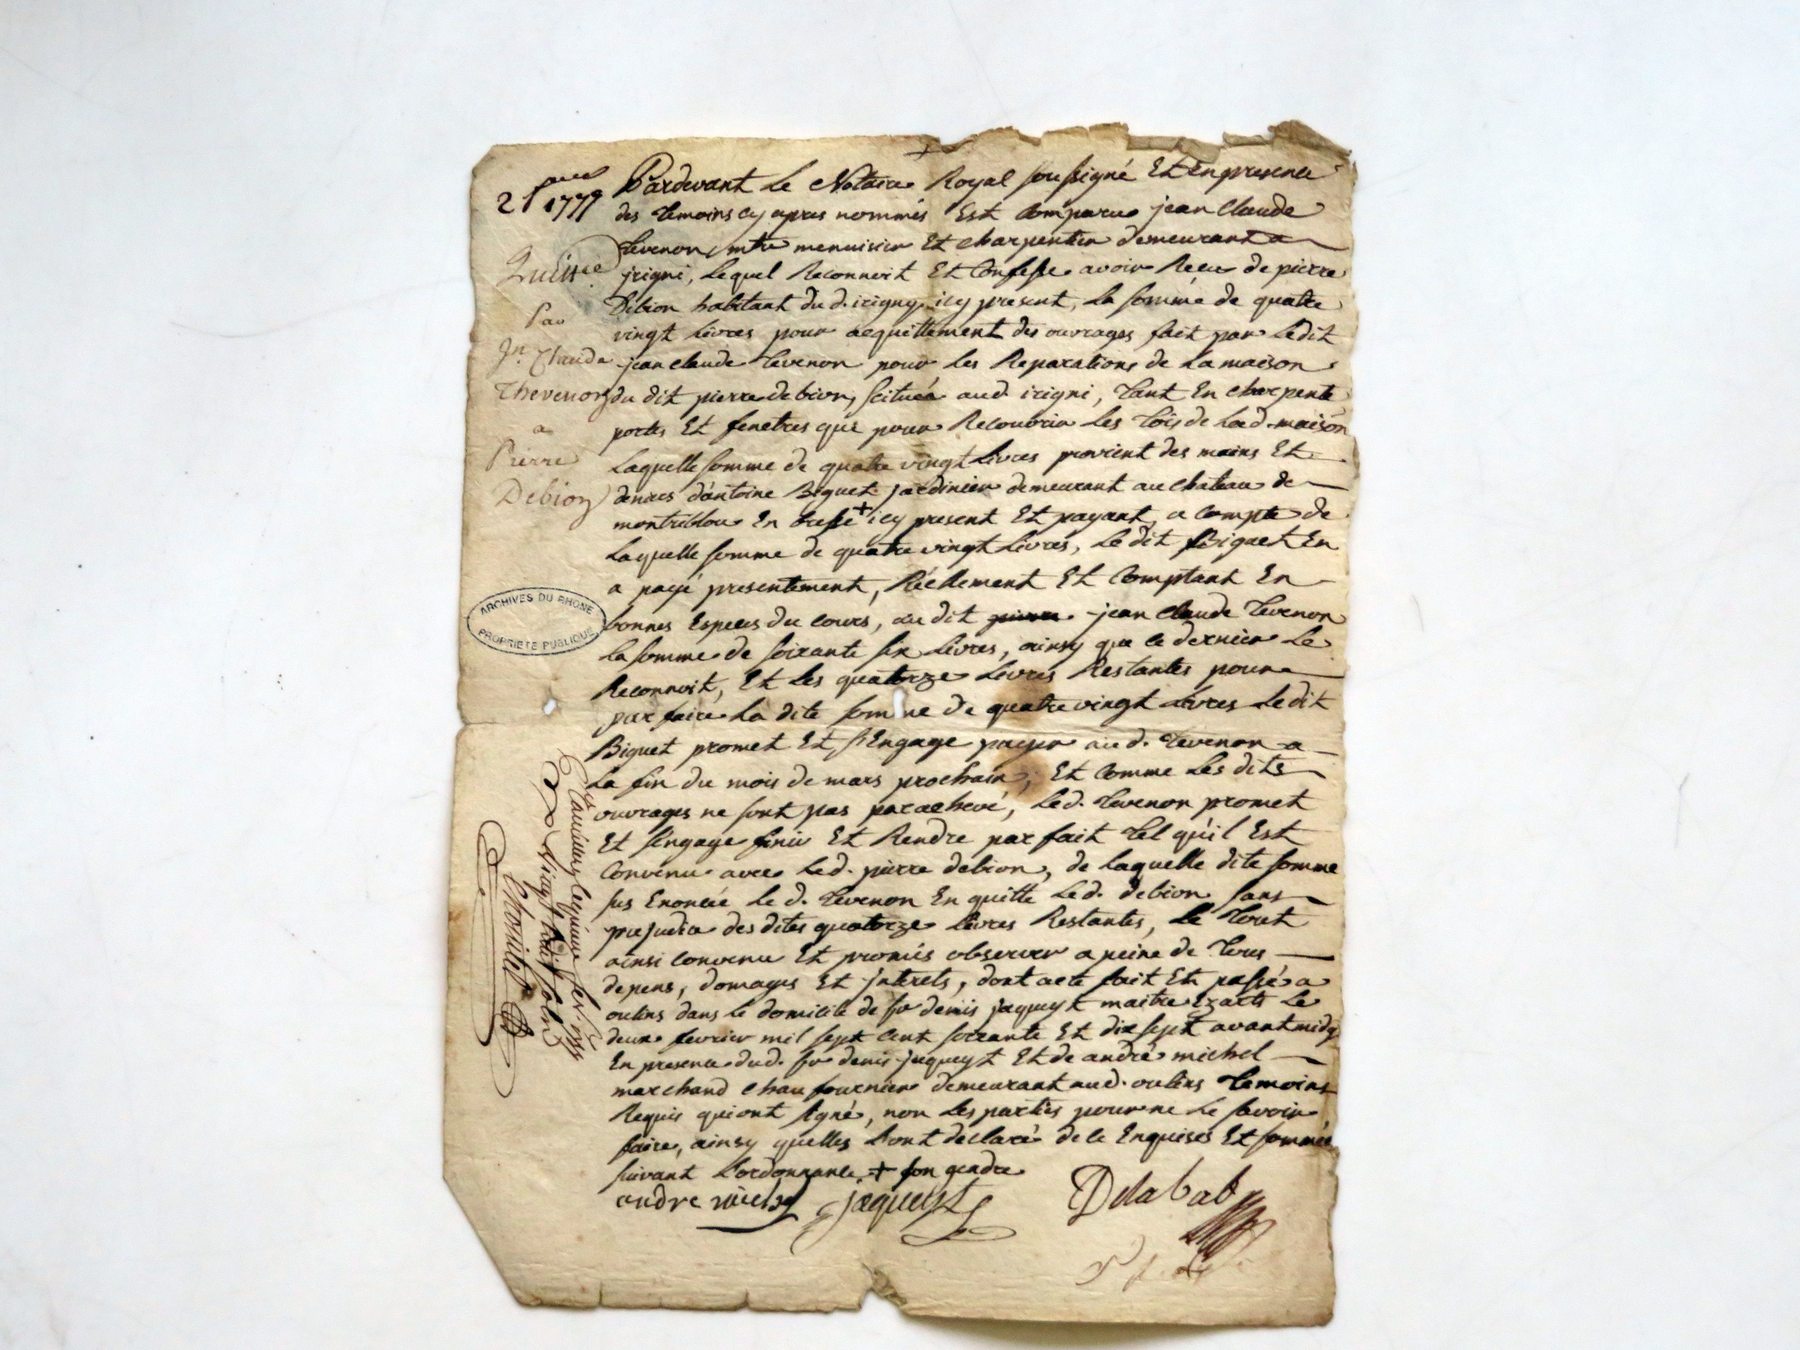 2 f 1777
Quittce
Par
Jn. Claude
Thevenon
a
Pierre
Debion
Pardevant Le Notaire Royal soussigné Et En presence
des temoins cy apres nommés Est comparu jean Claude
Tevenon mtre menuisier Et charpentier demeurant a
irigni, Lequel Reconnoit Et Confesse avoir Receu de pierre
Debion habitant du d. irigny icy present, La somme de quatre
vingt Livres pour acquittement des ouvrages fait par Ledit
jean Claude Tevenon pour Les Reparations de La maison
du dit pierre debion, scituée aud. irigni, Tant En charpente
portes Et fenetres que pour Recouvrir Les Tois de Lad. maison
Laquelle somme de quatre vingt Livres provient des mains Et
deniers d'antoine Biguet jardinier demeurant au chateau de
montriblou En bresse + icy present Et payant, a compte de
Laquelle somme de quatre vingt Livres, Le dit Biguet En
a payé presentement, Réellement Et Comptant En
bonnes Especes du cours, au dit pierre jean claude Tevenon
La somme de soixante six Livres, ainsy que ce dernier Le
Reconnoit, Et Les quatorze Livres Restantes pour
par faire La dite somme de quatre vingt Livres Le dit
Biguet promet Et s'Engage payer au d. Tevenon a
La fin du mois de mars prochain, Et Comme Les dits
ouvrages ne sont pas parachevé, Led. Tevenon promet
Et s'engage finir Et Rendre par fait Tel qu'il Est
Convenu avec Led. pierre debion, de Laquelle dite somme
sus Enoncée Le d. Tevenon En quitte Led. debion sans
prejudice des dites quatorze Livres Restantes, Le Tout
ainsi convenu Et promis observer a peine de Tous
depens, domages Et jnterets, dont acte fait Et passé a
oulins dans Le domicile de sr denis jaqueyt maitre Ezarts Le
deux fevrier mil sept cent soixante Et dix sept avant midy
En presence dud. sr denis jaqueyt Et de andré michel
marchand chaufournier demeurant aud. oulins Temoins
Requis qui ont signé, non Les parties pour ne Le savoir
faire, ainsy quelles L'ont declaré de ce Enquises Et sommées
suivant L'ordonnance + son gendre
andre michel jaqueyt Delabat
ARCHIVES DU RHONE
PROPRIETE PUBLIQUE